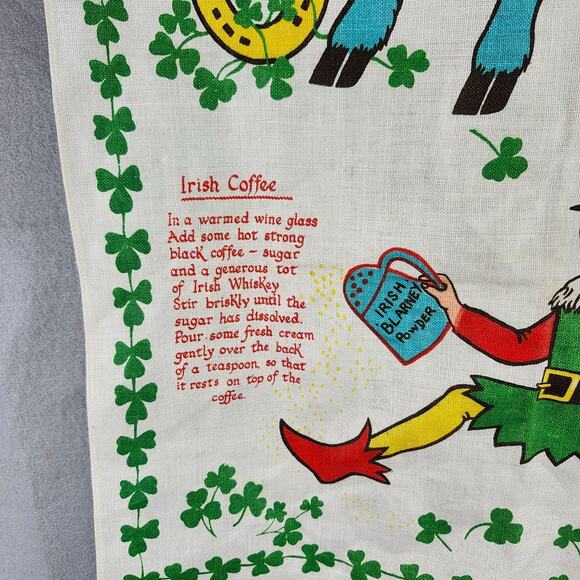 Irish Coffee
In a warmed wine glass
Add some hot strong
black coffee ~ sugar
and a generous tot
of Irish Whiskey
Stir briskly until the
sugar has dissolved.
Pour some fresh cream
gently over the back
of a teaspoon, so that
it rests on top of the
coffee.
IRISH
BLARNEY
POWDER